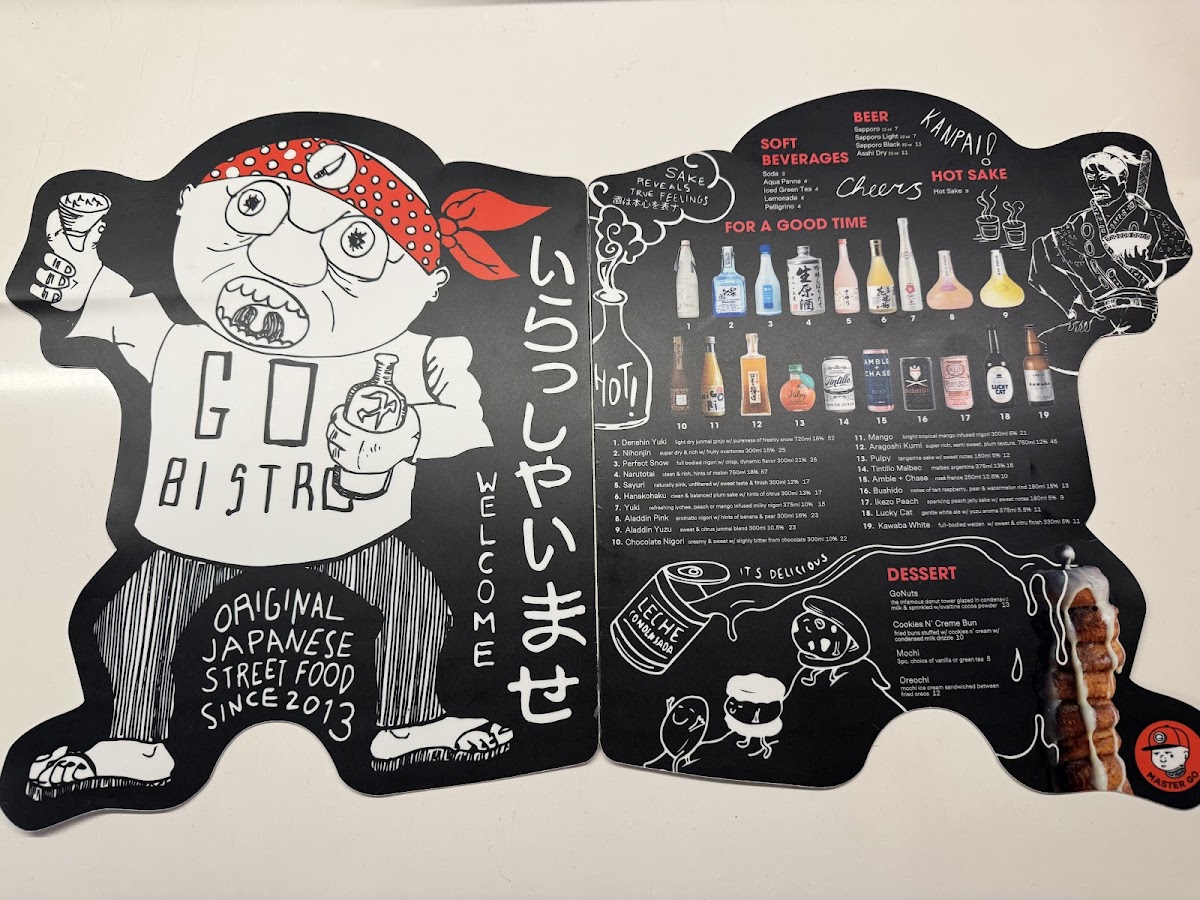 GO
BISTRO
ORIGINAL
JAPANESE
STREET FOOD
SINCE 2013
いらっしゃいませ
WELCOME
SAKE
REVEALS
TRUE FEELINGS
酒は本心を表す
HOT!
SOFT
BEVERAGES
Soda 3
Aqua Panna 4
Iced Green Tea 4
Lemonade 4
Pelligrino 4
BEER
Sapporo 12 oz 7
Sapporo Light 12 oz 7
Sapporo Black 22 oz 11
Asahi Dry 22 oz 11
KANPAI
Cheers
HOT SAKE
Hot Sake 9
FOR A GOOD TIME
生原酒
1 2 3 4 5 6 7 8 9
AMBLE
+
CHASE
Tintillo
BUSHIDO
LUCKY
CAT
KAWABA
10 11 12 13 14 15 16 17 18 19
1. Denshin Yuki light dry junmai ginjo w/ pureness of freshly snow 720ml 16% 52
2. Nihonjin super dry & rich w/ fruity overtones 300ml 15% 25
3. Perfect Snow full bodied nigori w/ crisp, dynamic flavor 300ml 21% 25
4. Narutotai clean & rich, hints of melon 750ml 18% 57
5. Sayuri naturally pink, unfiltered w/ sweet taste & finish 300ml 12% 17
6. Hanakohaku clean & balanced plum sake w/ hints of citrus 300ml 13% 17
7. Yuki refreshing lychee, peach or mango infused milky nigori 375ml 10% 15
8. Aladdin Pink aromatic nigori w/ hints of banana & pear 300ml 16% 23
9. Aladdin Yuzu sweet & citrus junmai blend 300ml 10.5% 23
10. Chocolate Nigori creamy & sweet w/ slighly bitter from chocolate 300ml 10% 22
11. Mango bright tropical mango infused nigori 300ml 8% 21
12. Aragoshi Kumi super rich, semi sweet, plum texture, 750ml 12% 45
13. Pulpy tangerine sake w/ sweet notes 180ml 8% 12
14. Tintillo Malbec malbec argentina 375ml 13% 15
15. Amble + Chase rosé france 250ml 12.5% 10
16. Bushido notes of tart raspberry, pear & watermelon rind 180ml 18% 13
17. Ikezo Peach sparkling peach jelly sake w/ sweet notes 180ml 5% 9
18. Lucky Cat gentle white ale w/ yuzu aroma 375ml 5.5% 11
19. Kawaba White full-bodied weizen w/ sweet & citru finish 330ml 5% 11
IT'S DELICIOUS
LECHE
CONDENSADA
DESSERT
GoNuts
the infamous donut tower glazed in condensed
milk & sprinkled w/ovaltine cocoa powder 13
Cookies N' Creme Bun
fried buns stuffed w/ cookies n' cream w/
condensed milk drizzle 10
Mochi
3pc, choice of vanilla or green tea 8
Oreochi
mochi ice cream sandwiched between
fried oreos 12
MASTER GO